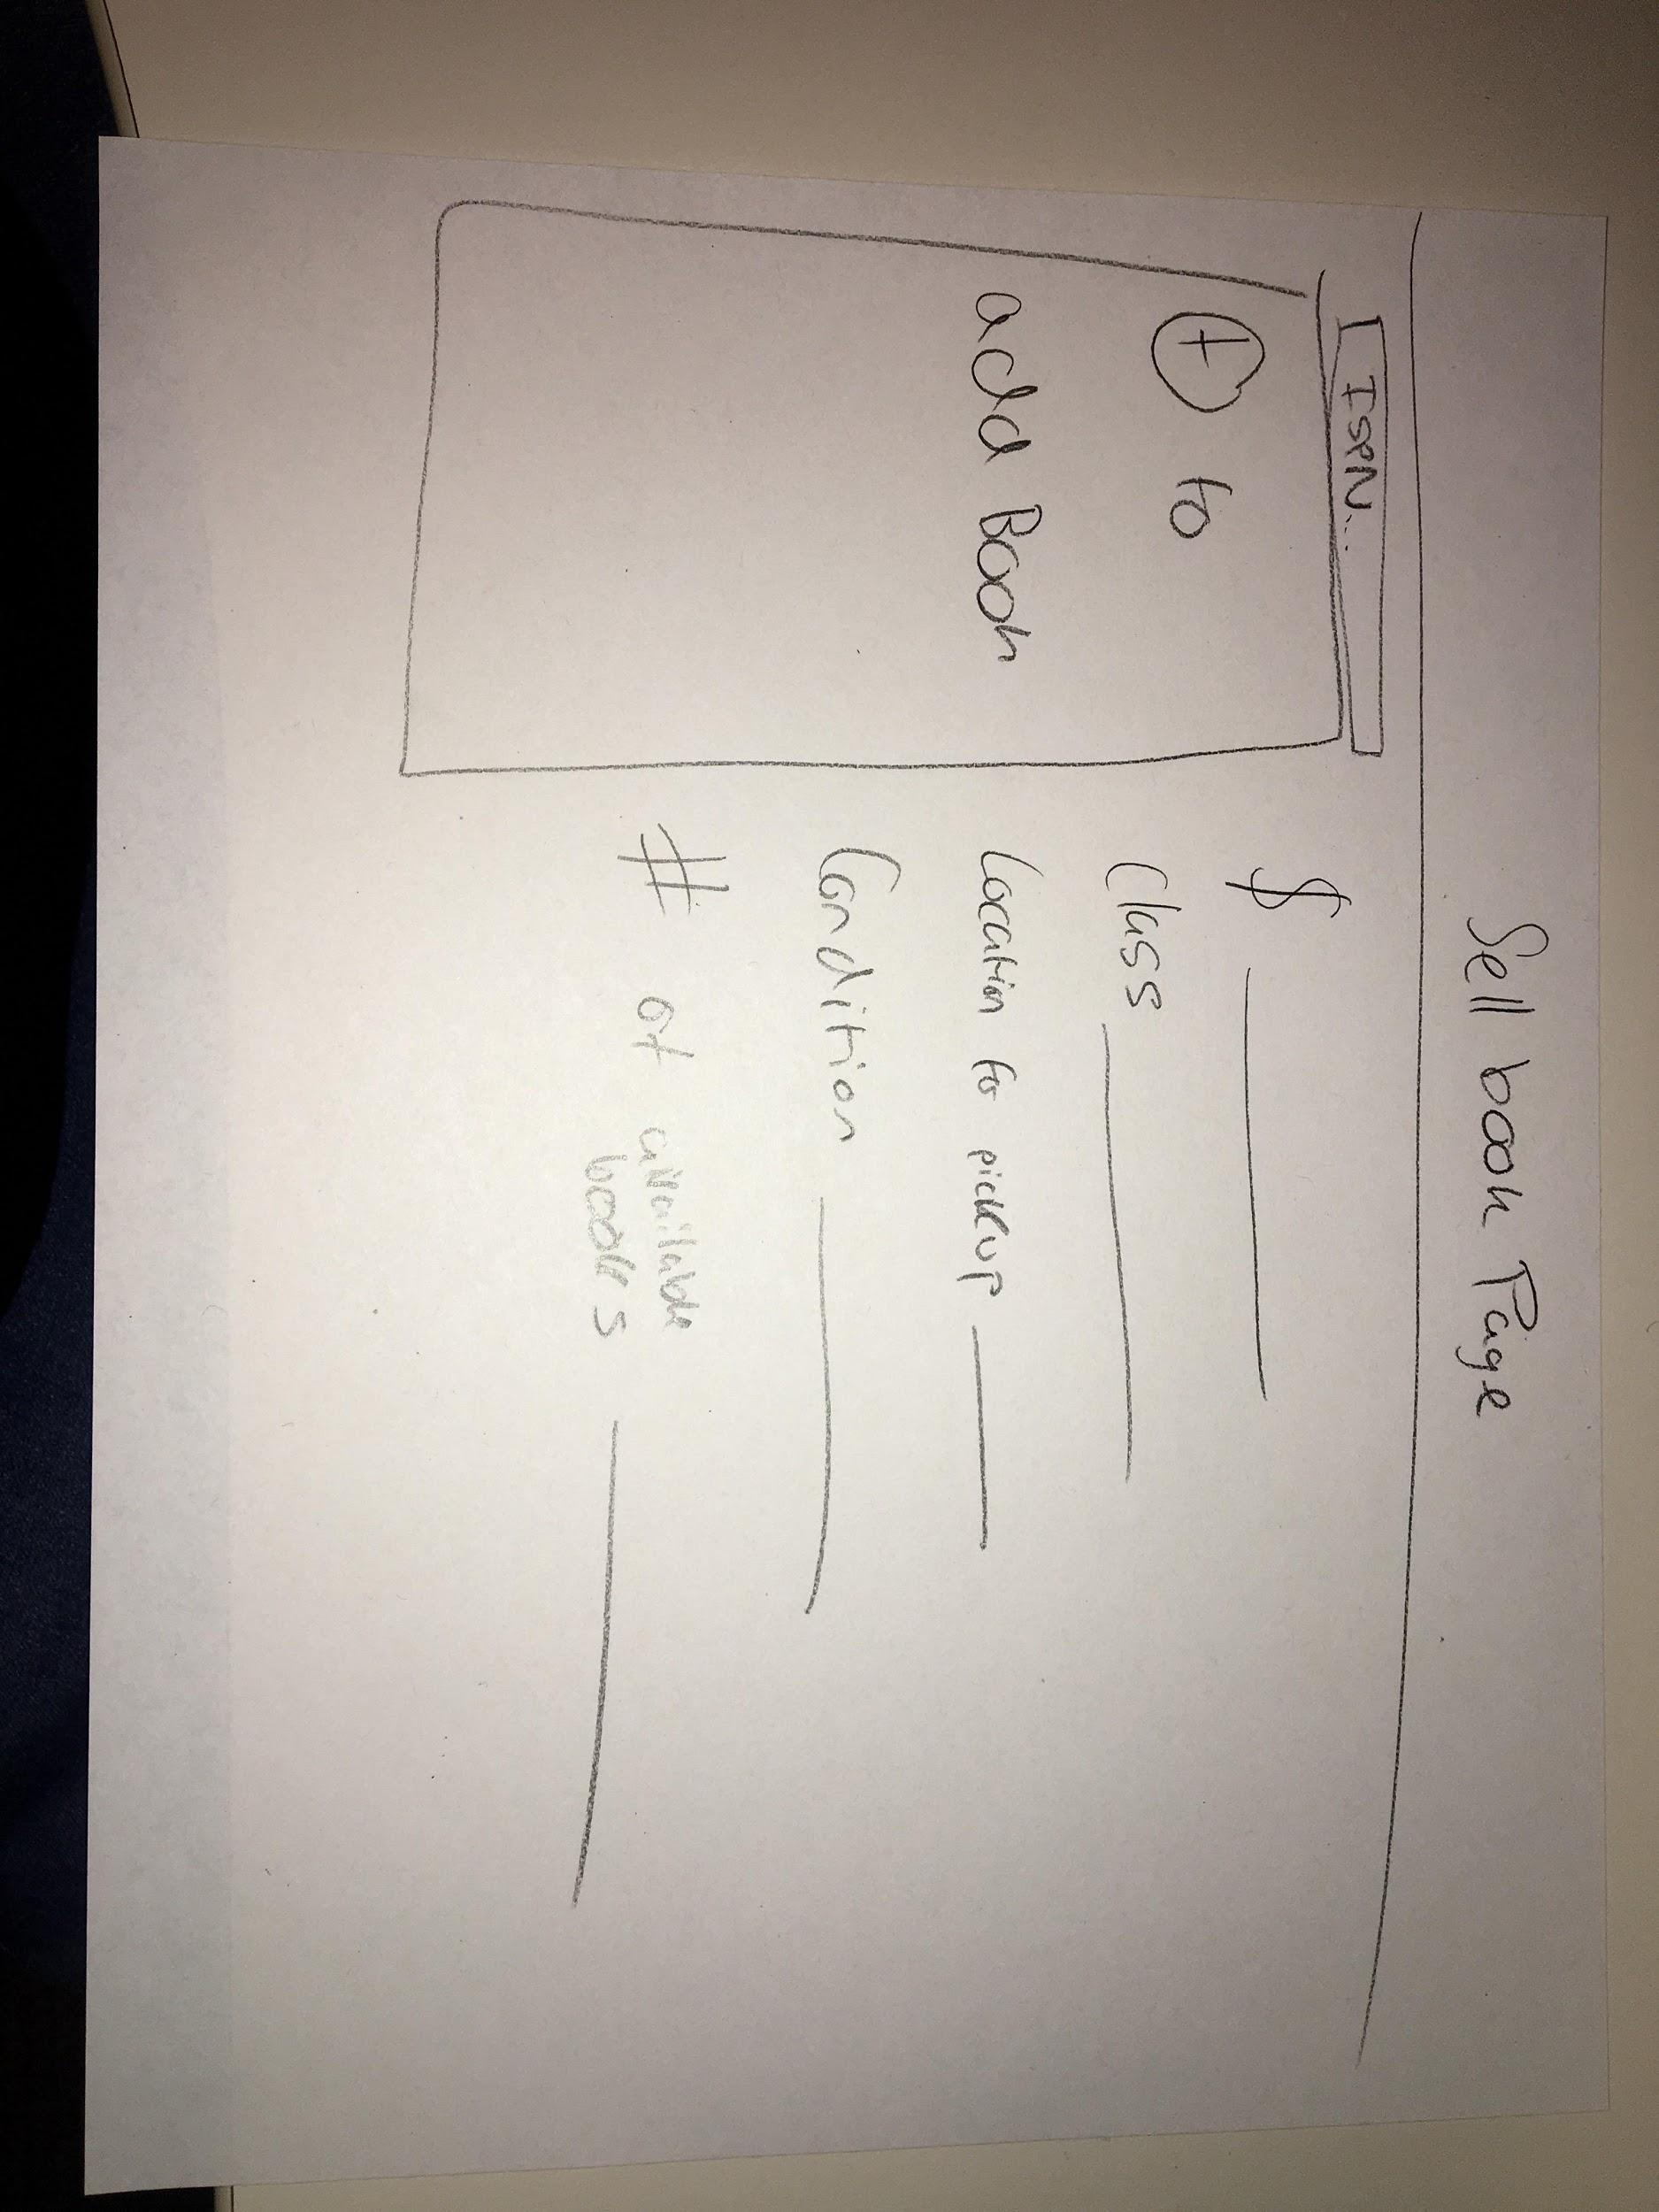 Sell book Page
ISBN...
+ to
add Book
$
Class
Location for pickup
Condition
# of available
books